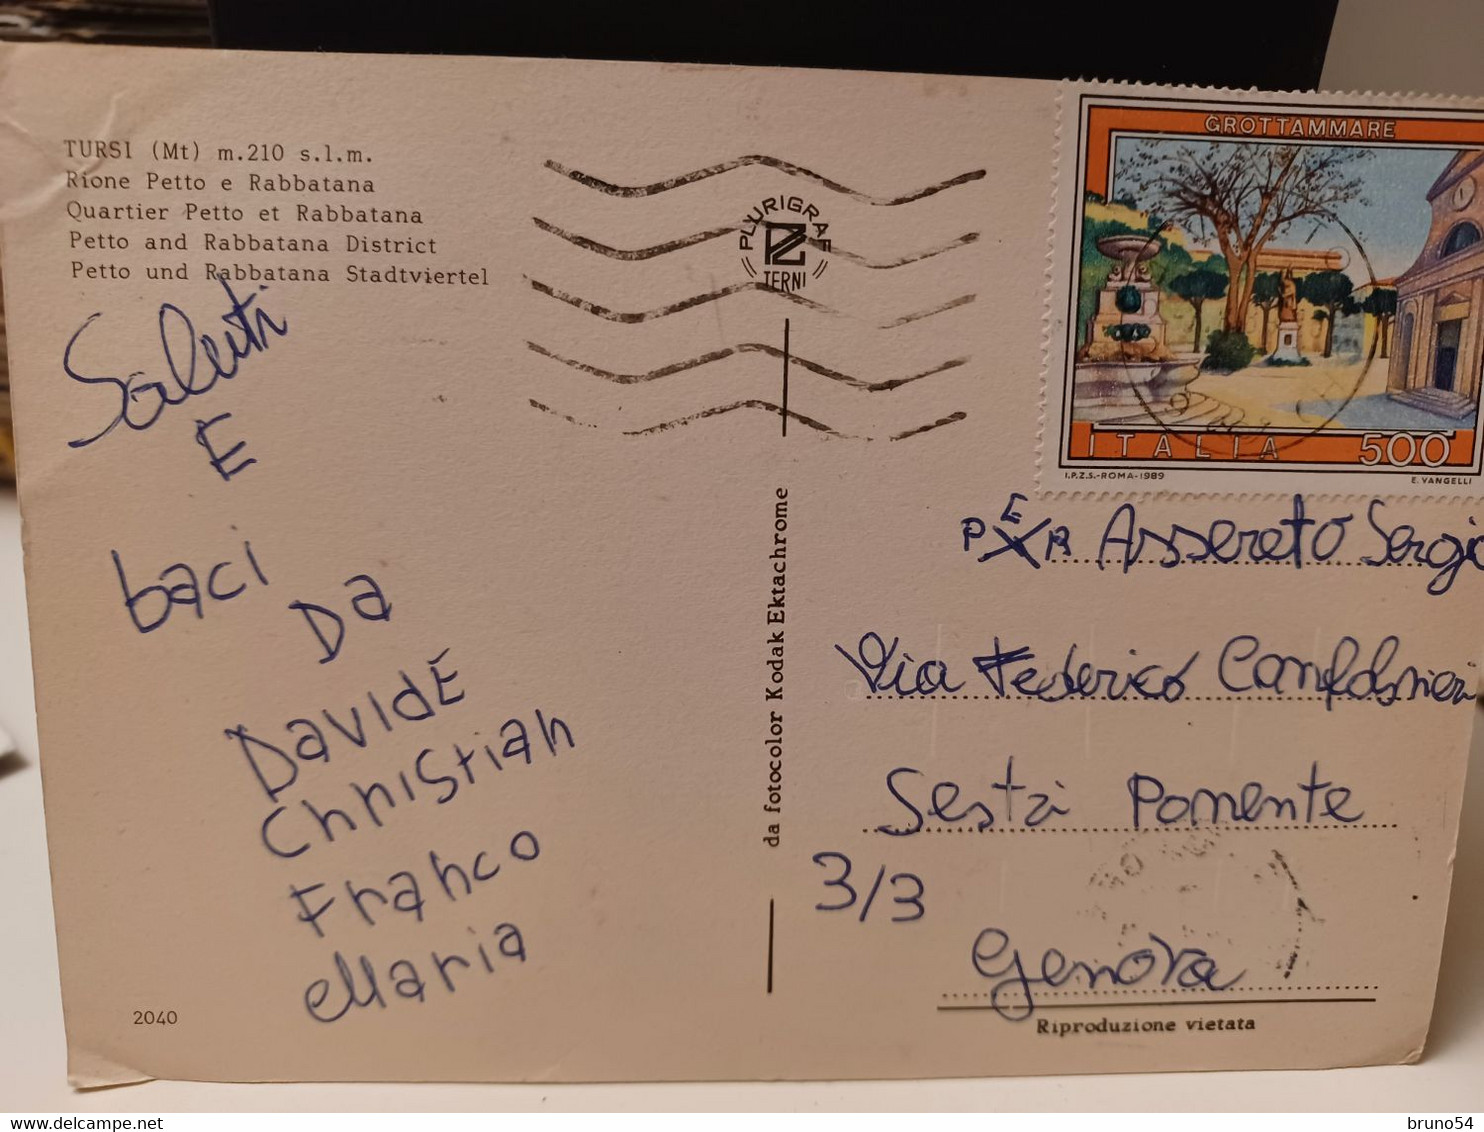 TURSI (Mt) m.210 s.l.m.
Rione Petto e Rabbatana
Quartier Petto et Rabbatana
Petto and Rabbatana District
Petto und Rabbatana Stadtviertel
Saluti
E
baci
Da
DavidE
Christian
Franco
Maria
2040
PLURIGRAF
TERNI
da fotocolor Kodak Ektachrome
GROTTAMMARE
ITALIA 500
I.P.Z.S.-ROMA-1989 E. VANGELLI
PER Assereto Sergio
Via Federico
Sestri Ponente
3/3
Genova
Riproduzione vietata
bruno54